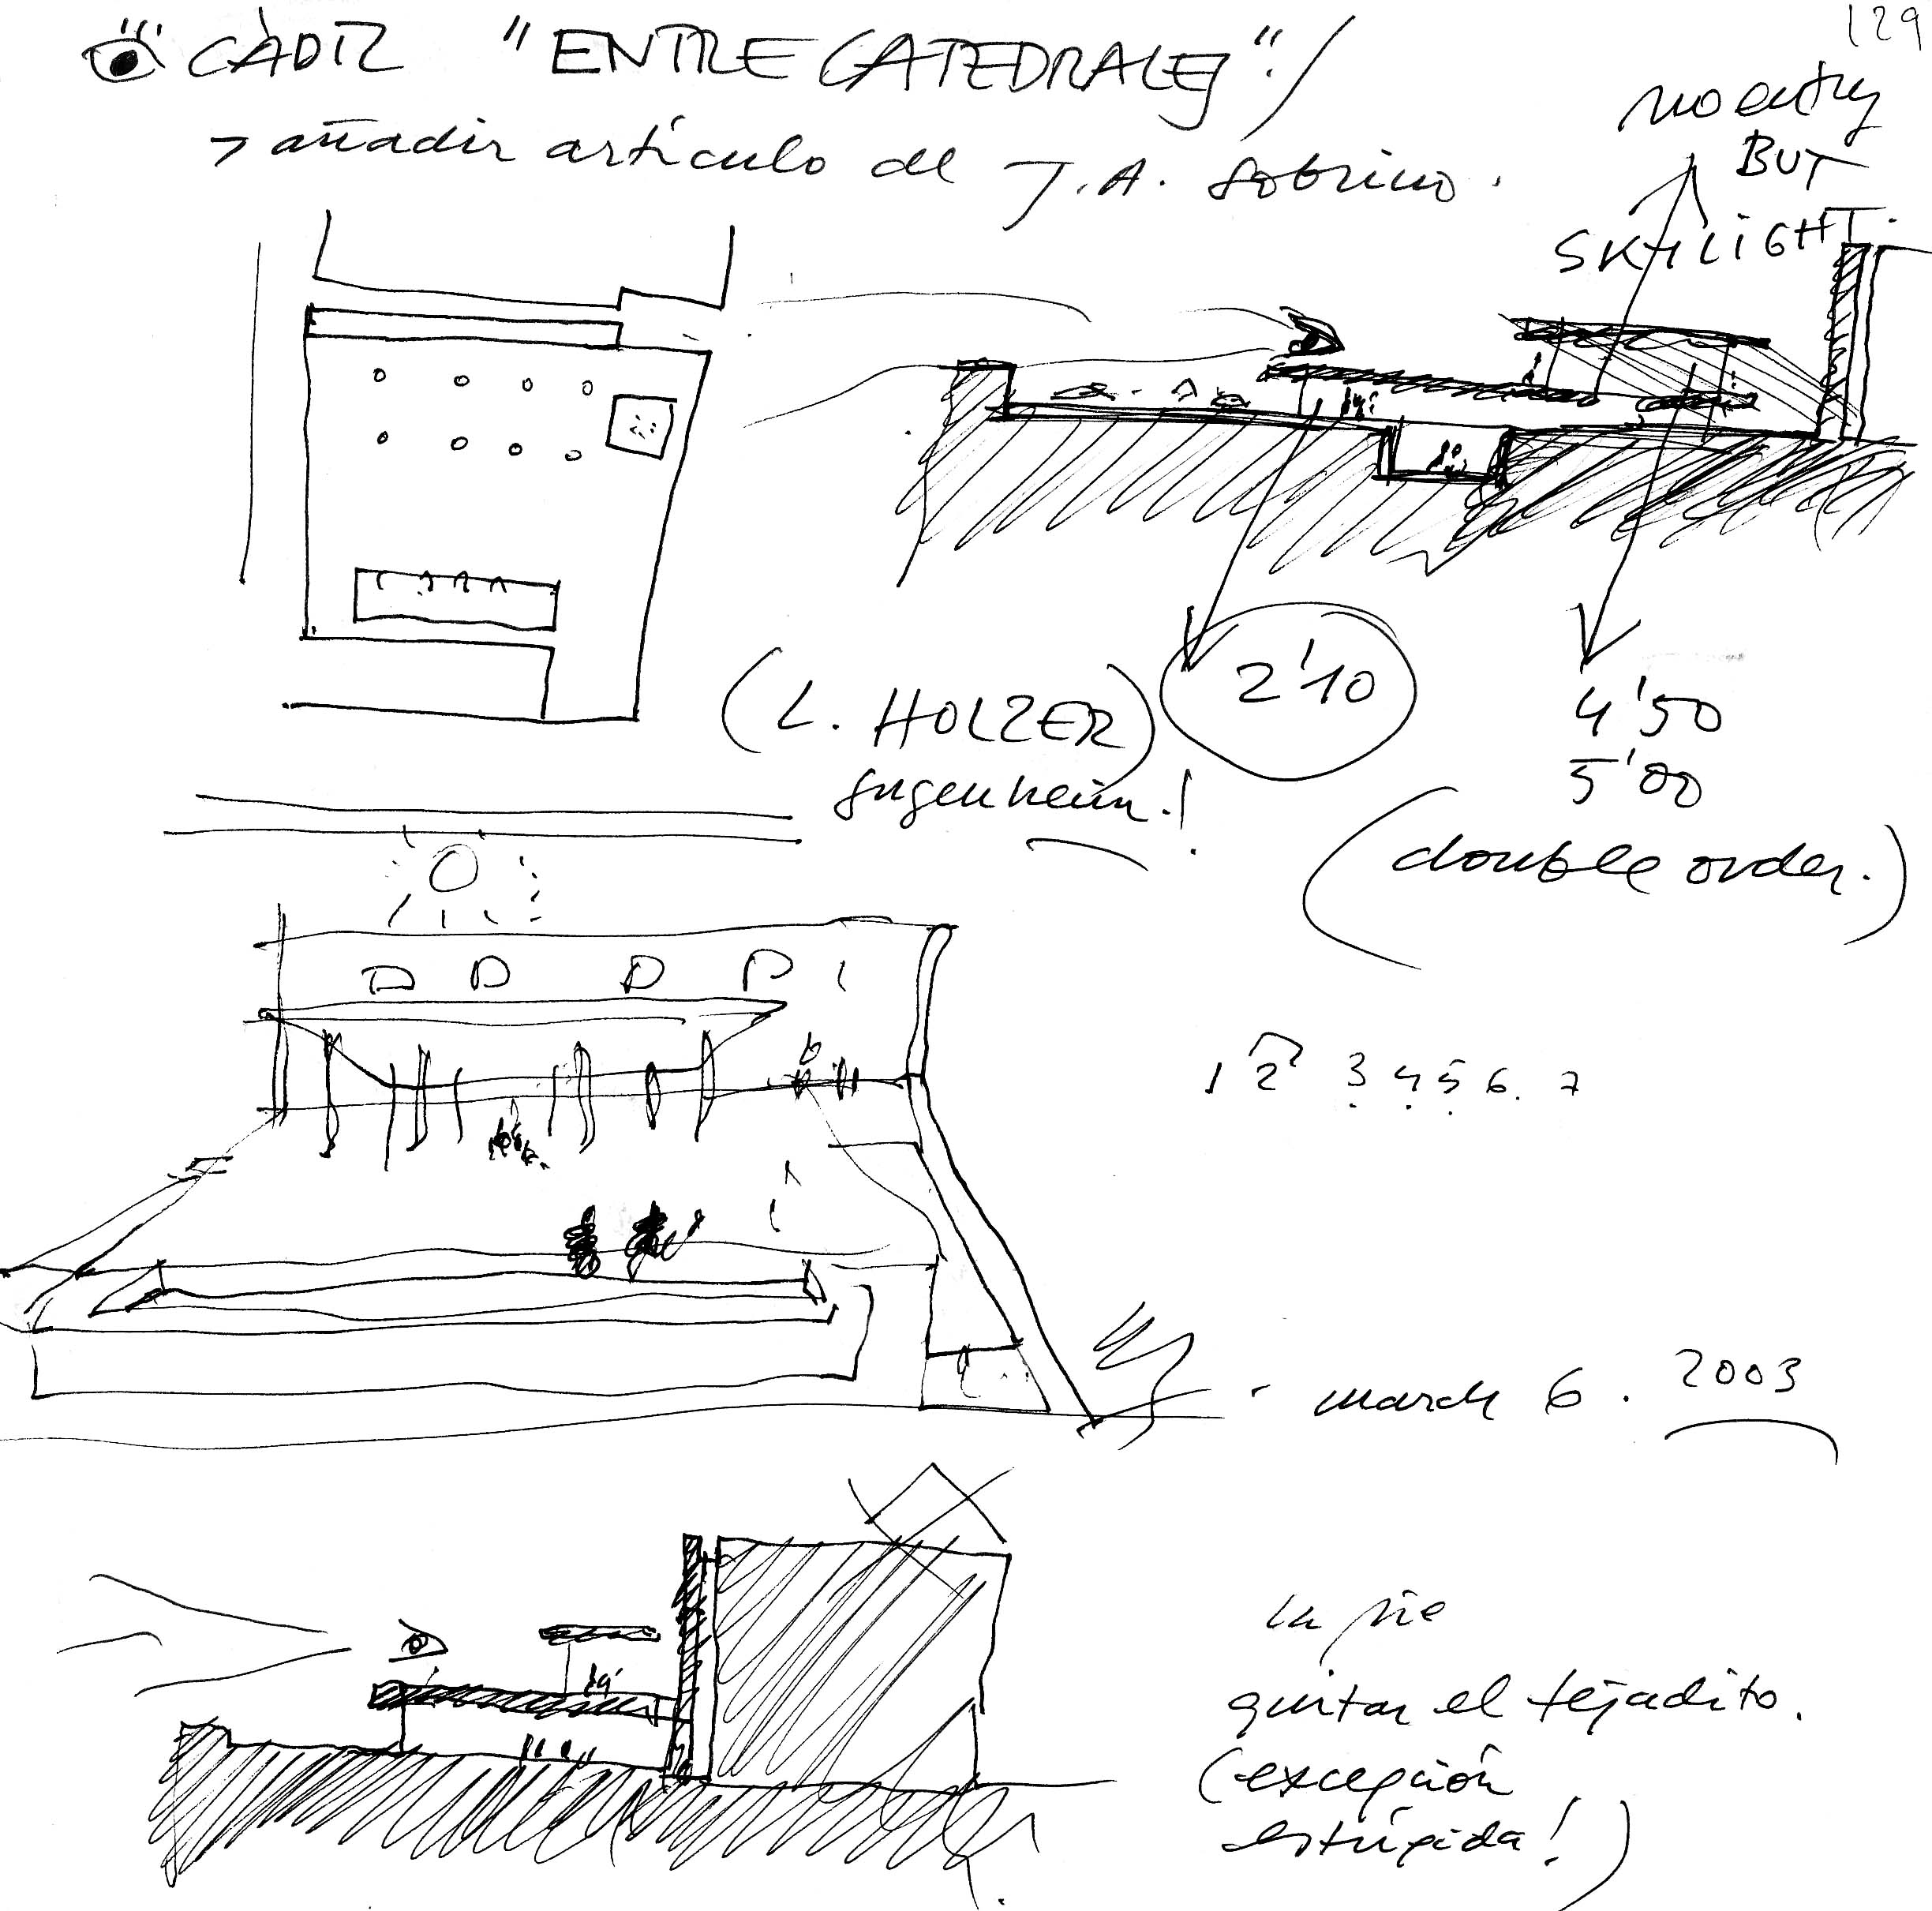 129
CÀDIZ "ENTRE CATEDRALES"./
→ añadir artículo de J.A. Sobrino.
no entry
BUT
SKYLIGHT.
(L. HOLZER)
gugenheim.!
2'10
4'50
5'00
(double order.)
1 2 3 4 5 6. 7
- march 6. 2003
quitar el tejadito.
(excepción
estúpida!)